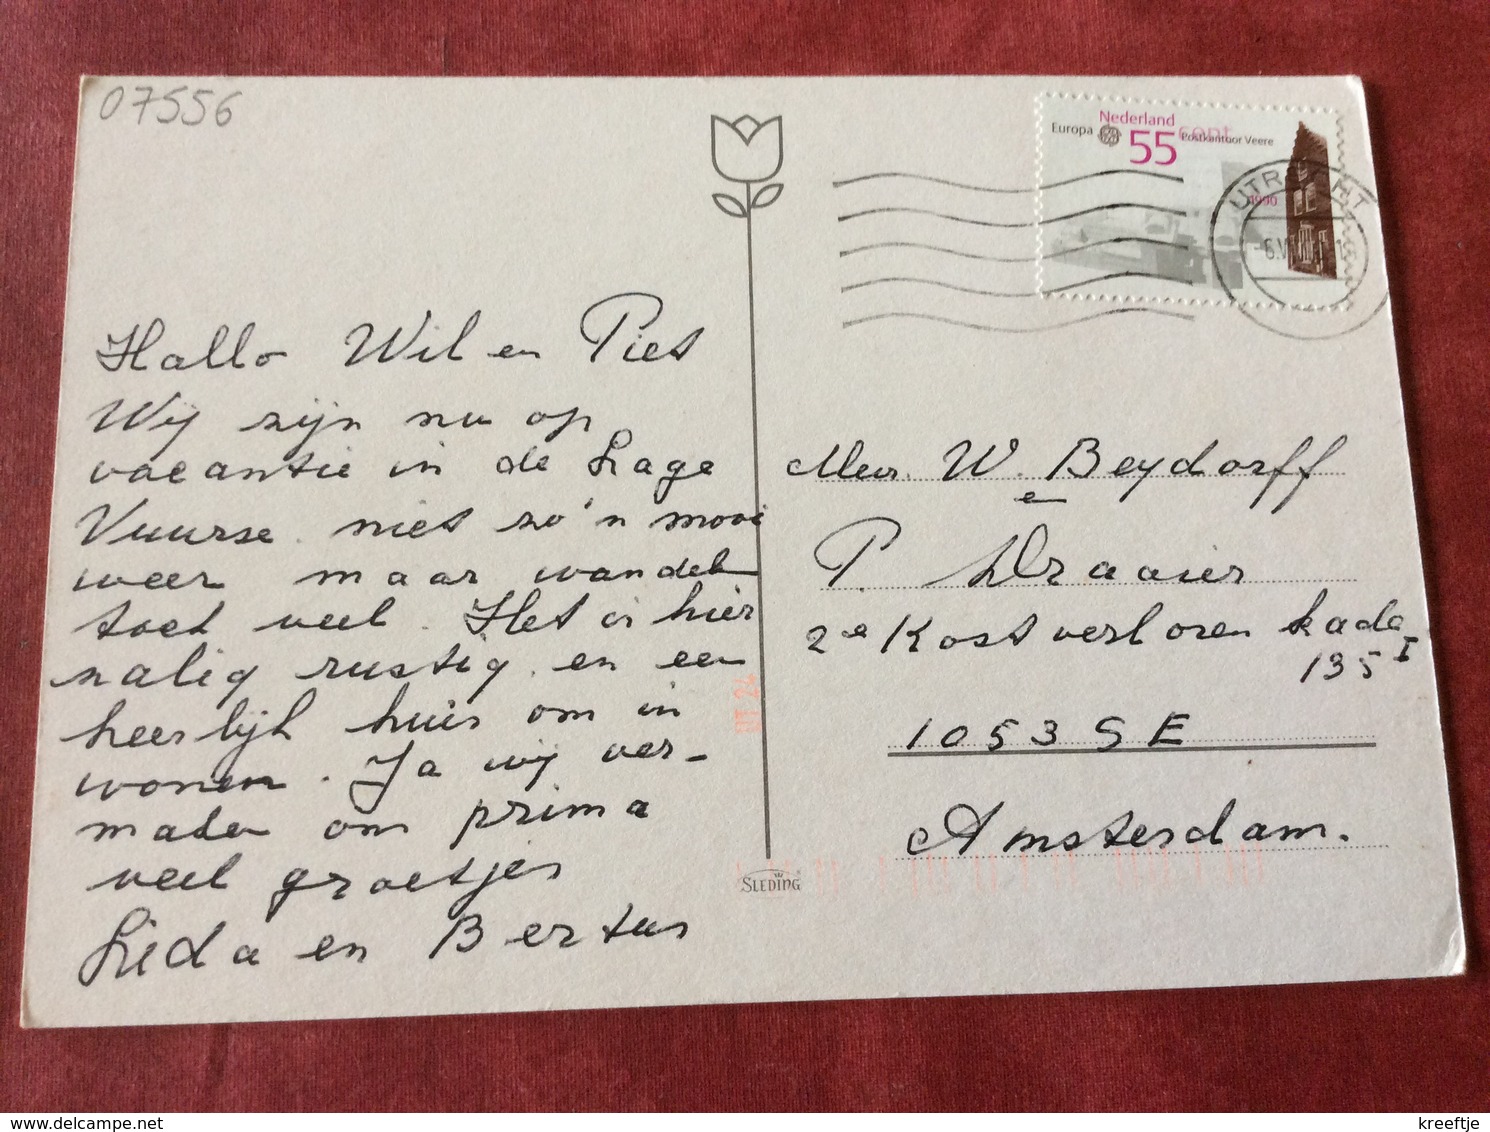 07556
Nederland
Europa
55
cent
Postkantoor Veere
1990
UTRECHT
Hallo Wil en Piet
Wij zijn nu op
vacantie in de Lage
Vuurse. niet zo'n mooi
weer maar wandel
toch veel. Het is hier
zalig rustig. en een
heerlijk huis om in
wonen. Ja wij ver-
maken ons prima
veel groetjes
Lieda en Bertus
Mevr. W. Beydorff
en
P Draaier
2e Kostverloren kade
135 I
1053 SE
Amsterdam.
SLEDING
kreeftje